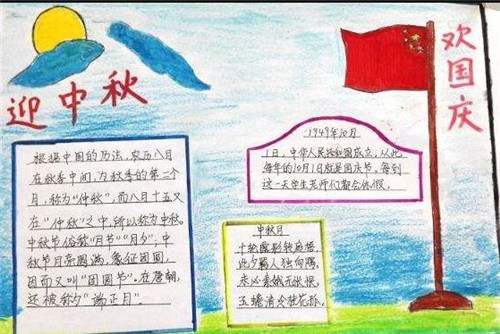 迎中秋
欢国庆
根据中国的历法，农历八月
在秋季中间，为秋季的第二个
月，称为“仲秋”，而八月十五又
在“仲秋”之中，所以称为中秋。
中秋节俗称“月节”“月夕”，中
秋节月亮圆满，象征团圆，
因而又叫“团圆节”。在唐朝，
还被称为“端正月”。
1949年10月
1日，中华人民共和国成立，从此
每年的10月1日就是国庆节，每到
这一天学生老师们都会休假。
中秋月
十轮霜影转庭梧，
此夕羁人独向隅。
未必素娥无怅恨，
玉蟾清冷桂花孤。